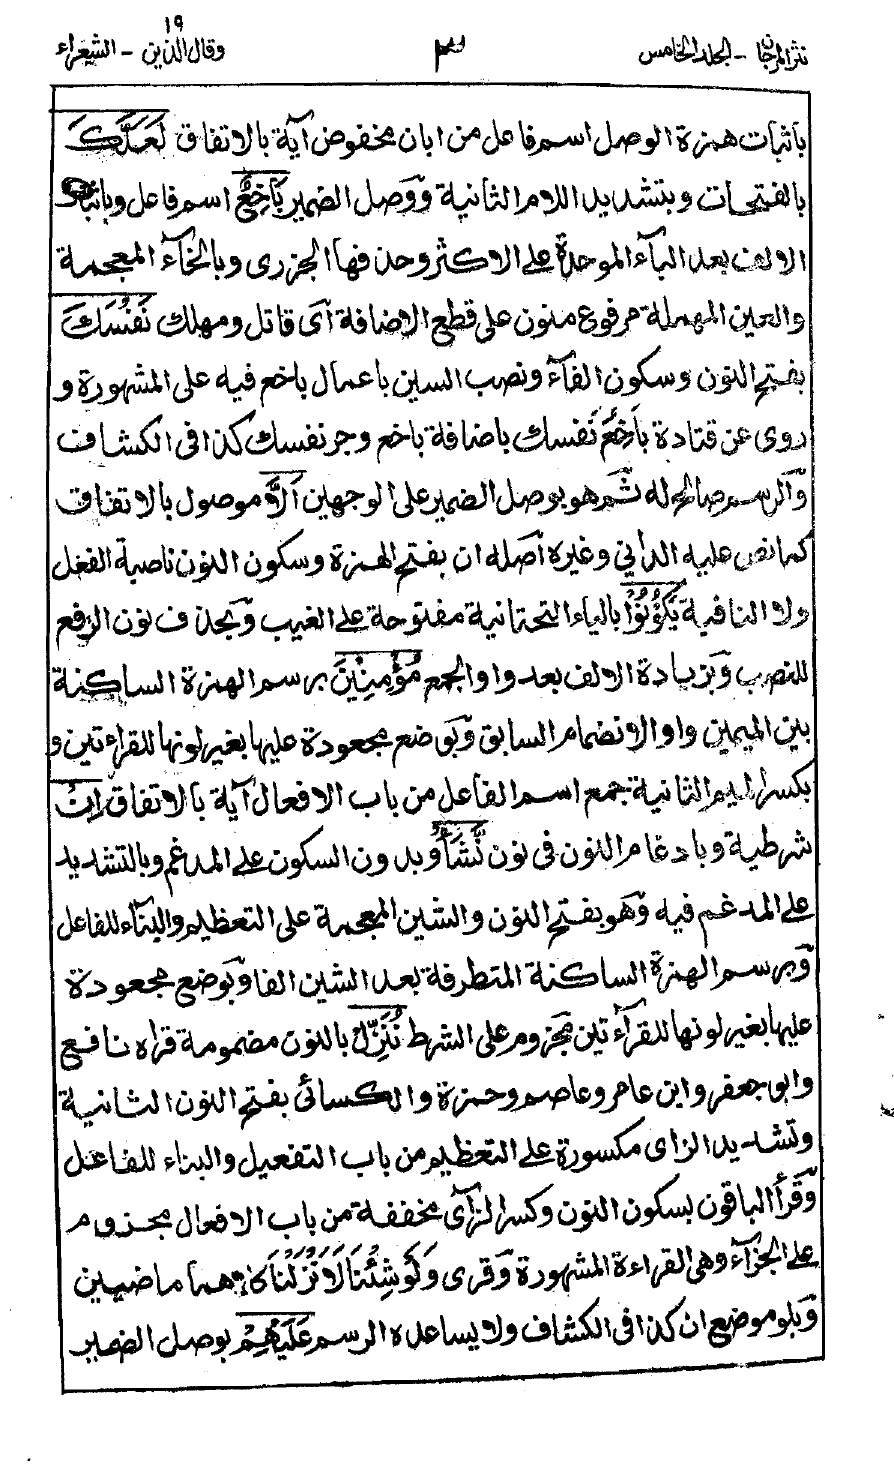 نثر المرجان - الجلد الخامس
٣
١٩
وقال الذين - الشعراء
باثبات همزة الوصل اسم فاعل من ابان مخفوض آية بالاتفاق لَعَلَّكَ
بالفتحات وبتشديد اللام الثانية وَوصل الضمير بَاخِعٌ اسم فاعل وباثبات
الالف بعد البآء الموحدة على الاكثر وحذفها الجزرى وبالخآء المعجمة
والعين المهملة مرفوع منون على قطع الاضافة آى قاتل ومهلك نَفْسَكَ
بفتح النون وسكون الفآء ونصب السين باعمال باخع فيه على المشهورة و
روى عن قتادة بَاخِعُ نَفسك باضافة باخع وجر نفسك كذا فى الكشاف
وَالرسم صالح له ثم هو بوصل الضمير على الوجهين اَلَّا موصول بالاتفاق
كما نص عليه الدانى وغيره آصله ان بفتح الهمزة وسكون النون ناصبة الفعل
ولا النافية يَكُوْنُوْا بالياء التحتانية مفتوحة على الغيب وَبحذف نون الرفع
للنصب وَبزيادة الالف بعد واو الجمع مُؤْمِنِيْنَ برسم الهمزة الساكنة
بين الميمين واوا لانضمام السابق وَبوضع مجعودة عليها بغير لونها للقراءتين و
بكسر الميم الثانية جمع اسم الفاعل من باب الافعال آية بالاتفاق اِنْ
شرطية وبادغام النون فى نون نَّشَأْ وبدون السكون على المدغم وبالتشديد
على المدغم فيه وَهو بفتح النون والشين المعجمة على التعظيم والبنآء للفاعل
وَبرسم الهمزة الساكنة المتطرفة بعد الشين الفا وَبوضع مجعودة
عليها بغير لونها للقرآءتين مجزوم على الشرط نُنَزِّلْ بالنون مضمومة قراه نافع
وابو جعفر وابن عامر وعاصم وحمزة والكسائى بفتح النون الثانية
وتشديد الزاى مكسورة على التعظيم من باب التفعيل والبناء للفاعل
وَقرأ الباقون بسكون النون وكسر الزآى مخففة من باب الافعال مجزوم
على الجزآء وهى القراءة المشهورة وَقرى وَلَوْ شِئْنَا لَاَنْزَلْنَا كلاهما ماضيين
وَبلو موضع ان كذا فى الكشاف ولا يساعده الرسم عَلَيْهِمْ بوصل الضمير